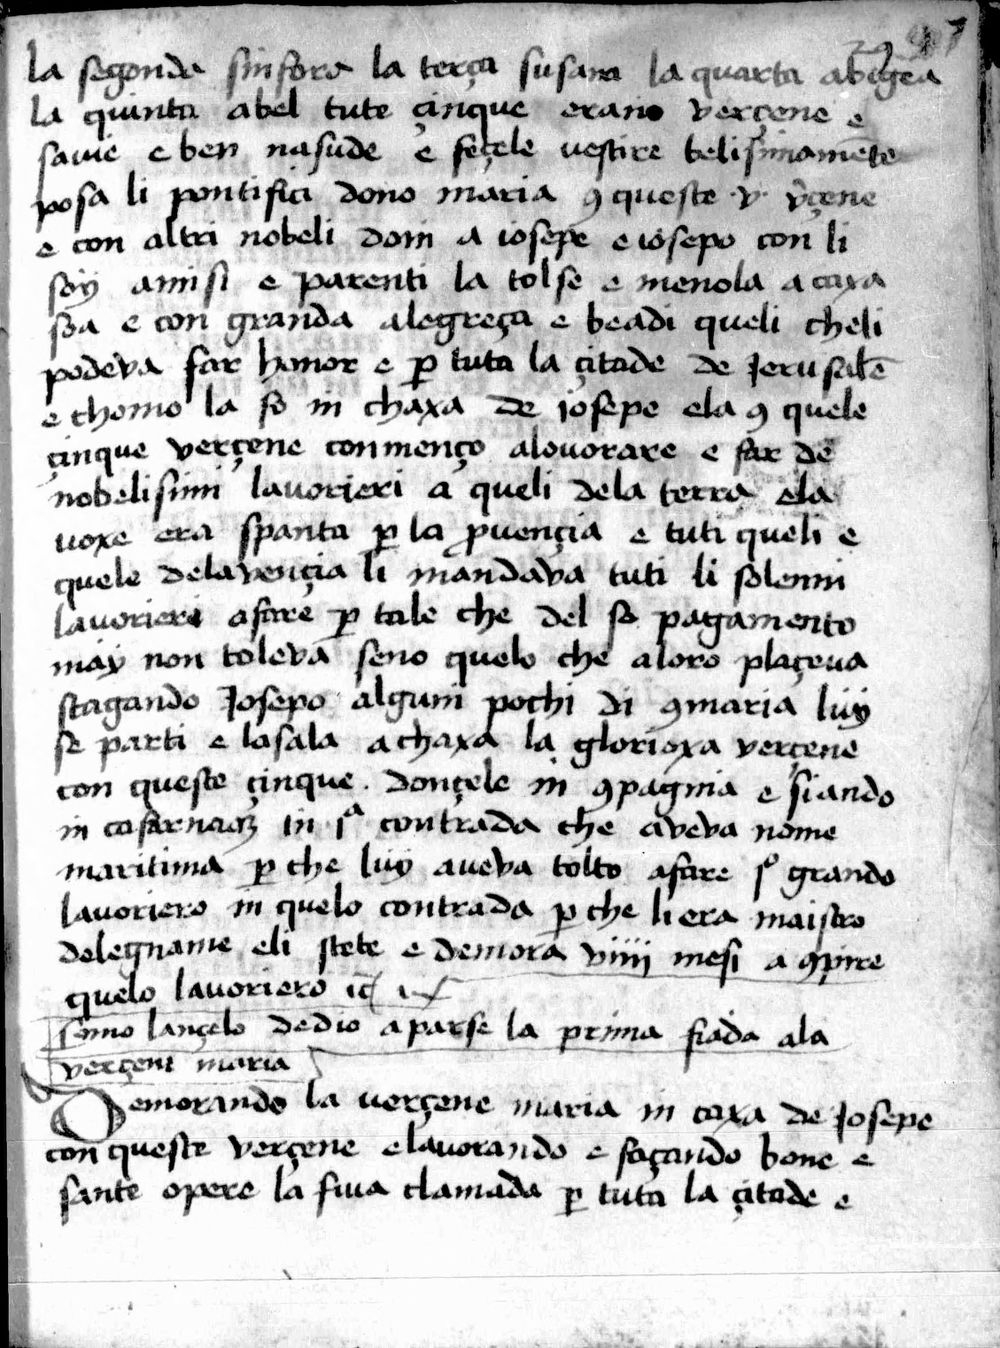 la segonda sinfora la terça susana la quarta abigea
la quinta abel tute çinque erano verçene e
savie e ben nasude e feçele vestire belisimamēte
posa li pontifici dono maria ꝯ queste ·v· v̄çene
e con altri nobeli doni a iosepe e iosepo con li
soÿ amisi e parenti la tolse e menola a caxa
soa e con granda alegreça e beadi queli cheli
podeva far honor e ꝑ tuta la çitade de Jerusalē
e chomo la fo in chaxa de iosepe ela ꝯ quele
çinque verçene conmenço alouorare e far de
nobelisimi lauorieri a queli dela terra ela
uoxe era spanta ꝑ la ꝓuençia e tuti queli e
quele dela vençia li mandava tuti li solenni
lauorieri afare ꝑ tale che del so pagamento
maÿ non toleva seno quelo che aloro plaçeua
stagando Josepo alguni pochi di ꝯmaria luÿ
se parti e lasala a chaxa la glorioxa verçene
con queste çinque donçele in ꝯpagnia e siando
in cafarnaꝫ in jᵃ contrada che aveva nome
maritima ꝑ che luÿ aueva tolto afare jº grando
lauoriero in quelo contrada ꝑ che li era maistro
delegname eli stete e demora viiij mesi a ꝯpire
quelo lauoriero
Como lançelo dedio aparse la prima fiada ala
verçene maria
Demorando la uerçene maria in caxa de Josepe
con queste verçene elauorando e façando bone e
sante opere la fiua clamada ꝑ tuta la çitade e